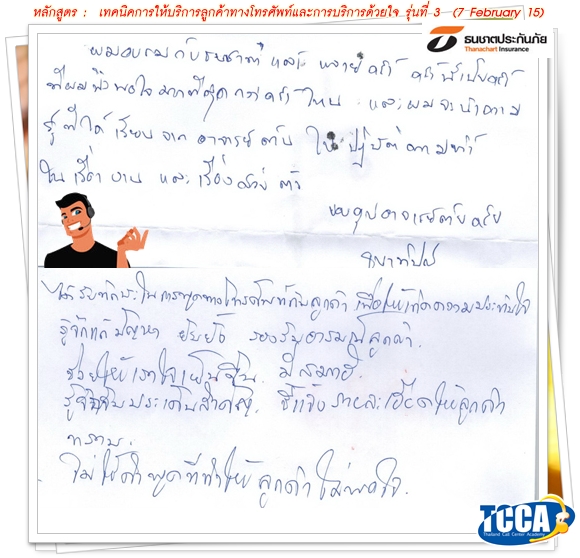 หลักสูตร : เทคนิคการให้บริการลูกค้าทางโทรศัพท์และการบริการด้วยใจ รุ่นที่ 3 (7 February 15)
ธนชาตประกันภัย
Thanachart Insurance
ผมอบรมกับธนชาต และ หลายครั้ง ครั้งนี้เป็นครั้ง
ที่ผมพึงพอใจมากที่สุด กว่าครั้งไหน และผมจะนำความ
รู้ที่ได้เรียนจาก อาจารย์ ไปปฏิบัติ
ใน เรื่องงาน และ เรื่องส่วนตัว
ขอบคุณอาจารย์ ครับ
ได้รับทักษะในการพูดทางโทรศัพท์กับลูกค้า เพื่อให้เกิดความประทับใจ
รู้จักแก้ปัญหา ยับยั้ง รองรับอารมณ์ลูกค้า.
ช่วยให้เราใจเย็นขึ้น. มีสมาธิ
รู้จักจับประเด็นสำคัญ. ชี้แจ้งรายละเอียดให้ลูกค้า
ทราบ.
ไม่ใช้คำพูดที่ทำให้ลูกค้าไม่พอใจ.
TCCA
Thailand Call Center Academy